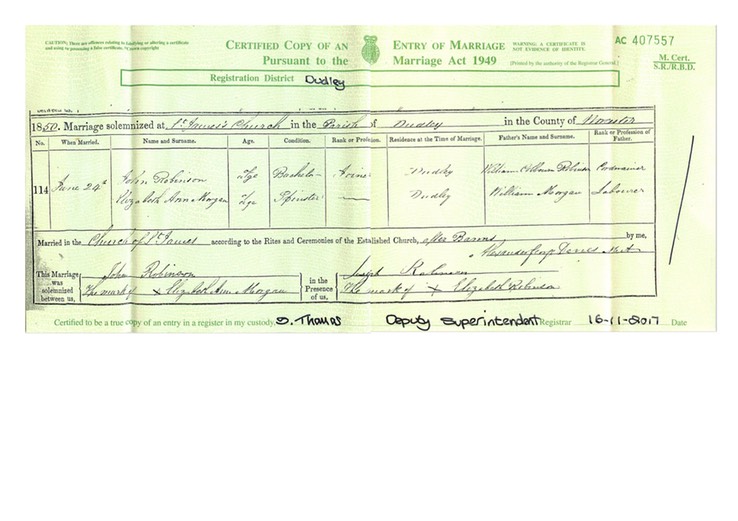 CAUTION: There are offences relating to falsifying or altering a certificate
and using or possessing a false certificate. ©Crown copyright
CERTIFIED COPY OF AN ENTRY OF MARRIAGE
Pursuant to the Marriage Act 1949
WARNING: A CERTIFICATE IS
NOT EVIDENCE OF IDENTITY.
(Printed by the authority of the Registrar General.)
AC 407557
M. Cert.
S.R./R.B.D.
Registration District Dudley
1850. Marriage solemnized at St James's Church in the Parish of Dudley in the County of Worcester
No. When Married. Name and Surname. Age. Condition. Rank or Profession. Residence at the Time of Marriage. Father's Name and Surname. Rank or Profession of Father.
114 June 24 John Robinson Age Bachelor Dudley William Robinson Cordwainer
Elizabeth Ann Morgan Age Spinster — Dudley William Morgan Labourer
Married in the Church of St James according to the Rites and Ceremonies of the Established Church, after Banns by me,
Alexander Davies
This Marriage was solemnized between us, John Robinson in the Presence of us, Joseph Robinson
The mark of x Elizabeth Ann Morgan The mark of x Elizabeth Robinson
Certified to be a true copy of an entry in a register in my custody, D. Thomas Deputy Superintendent Registrar 16-11-2017 Date